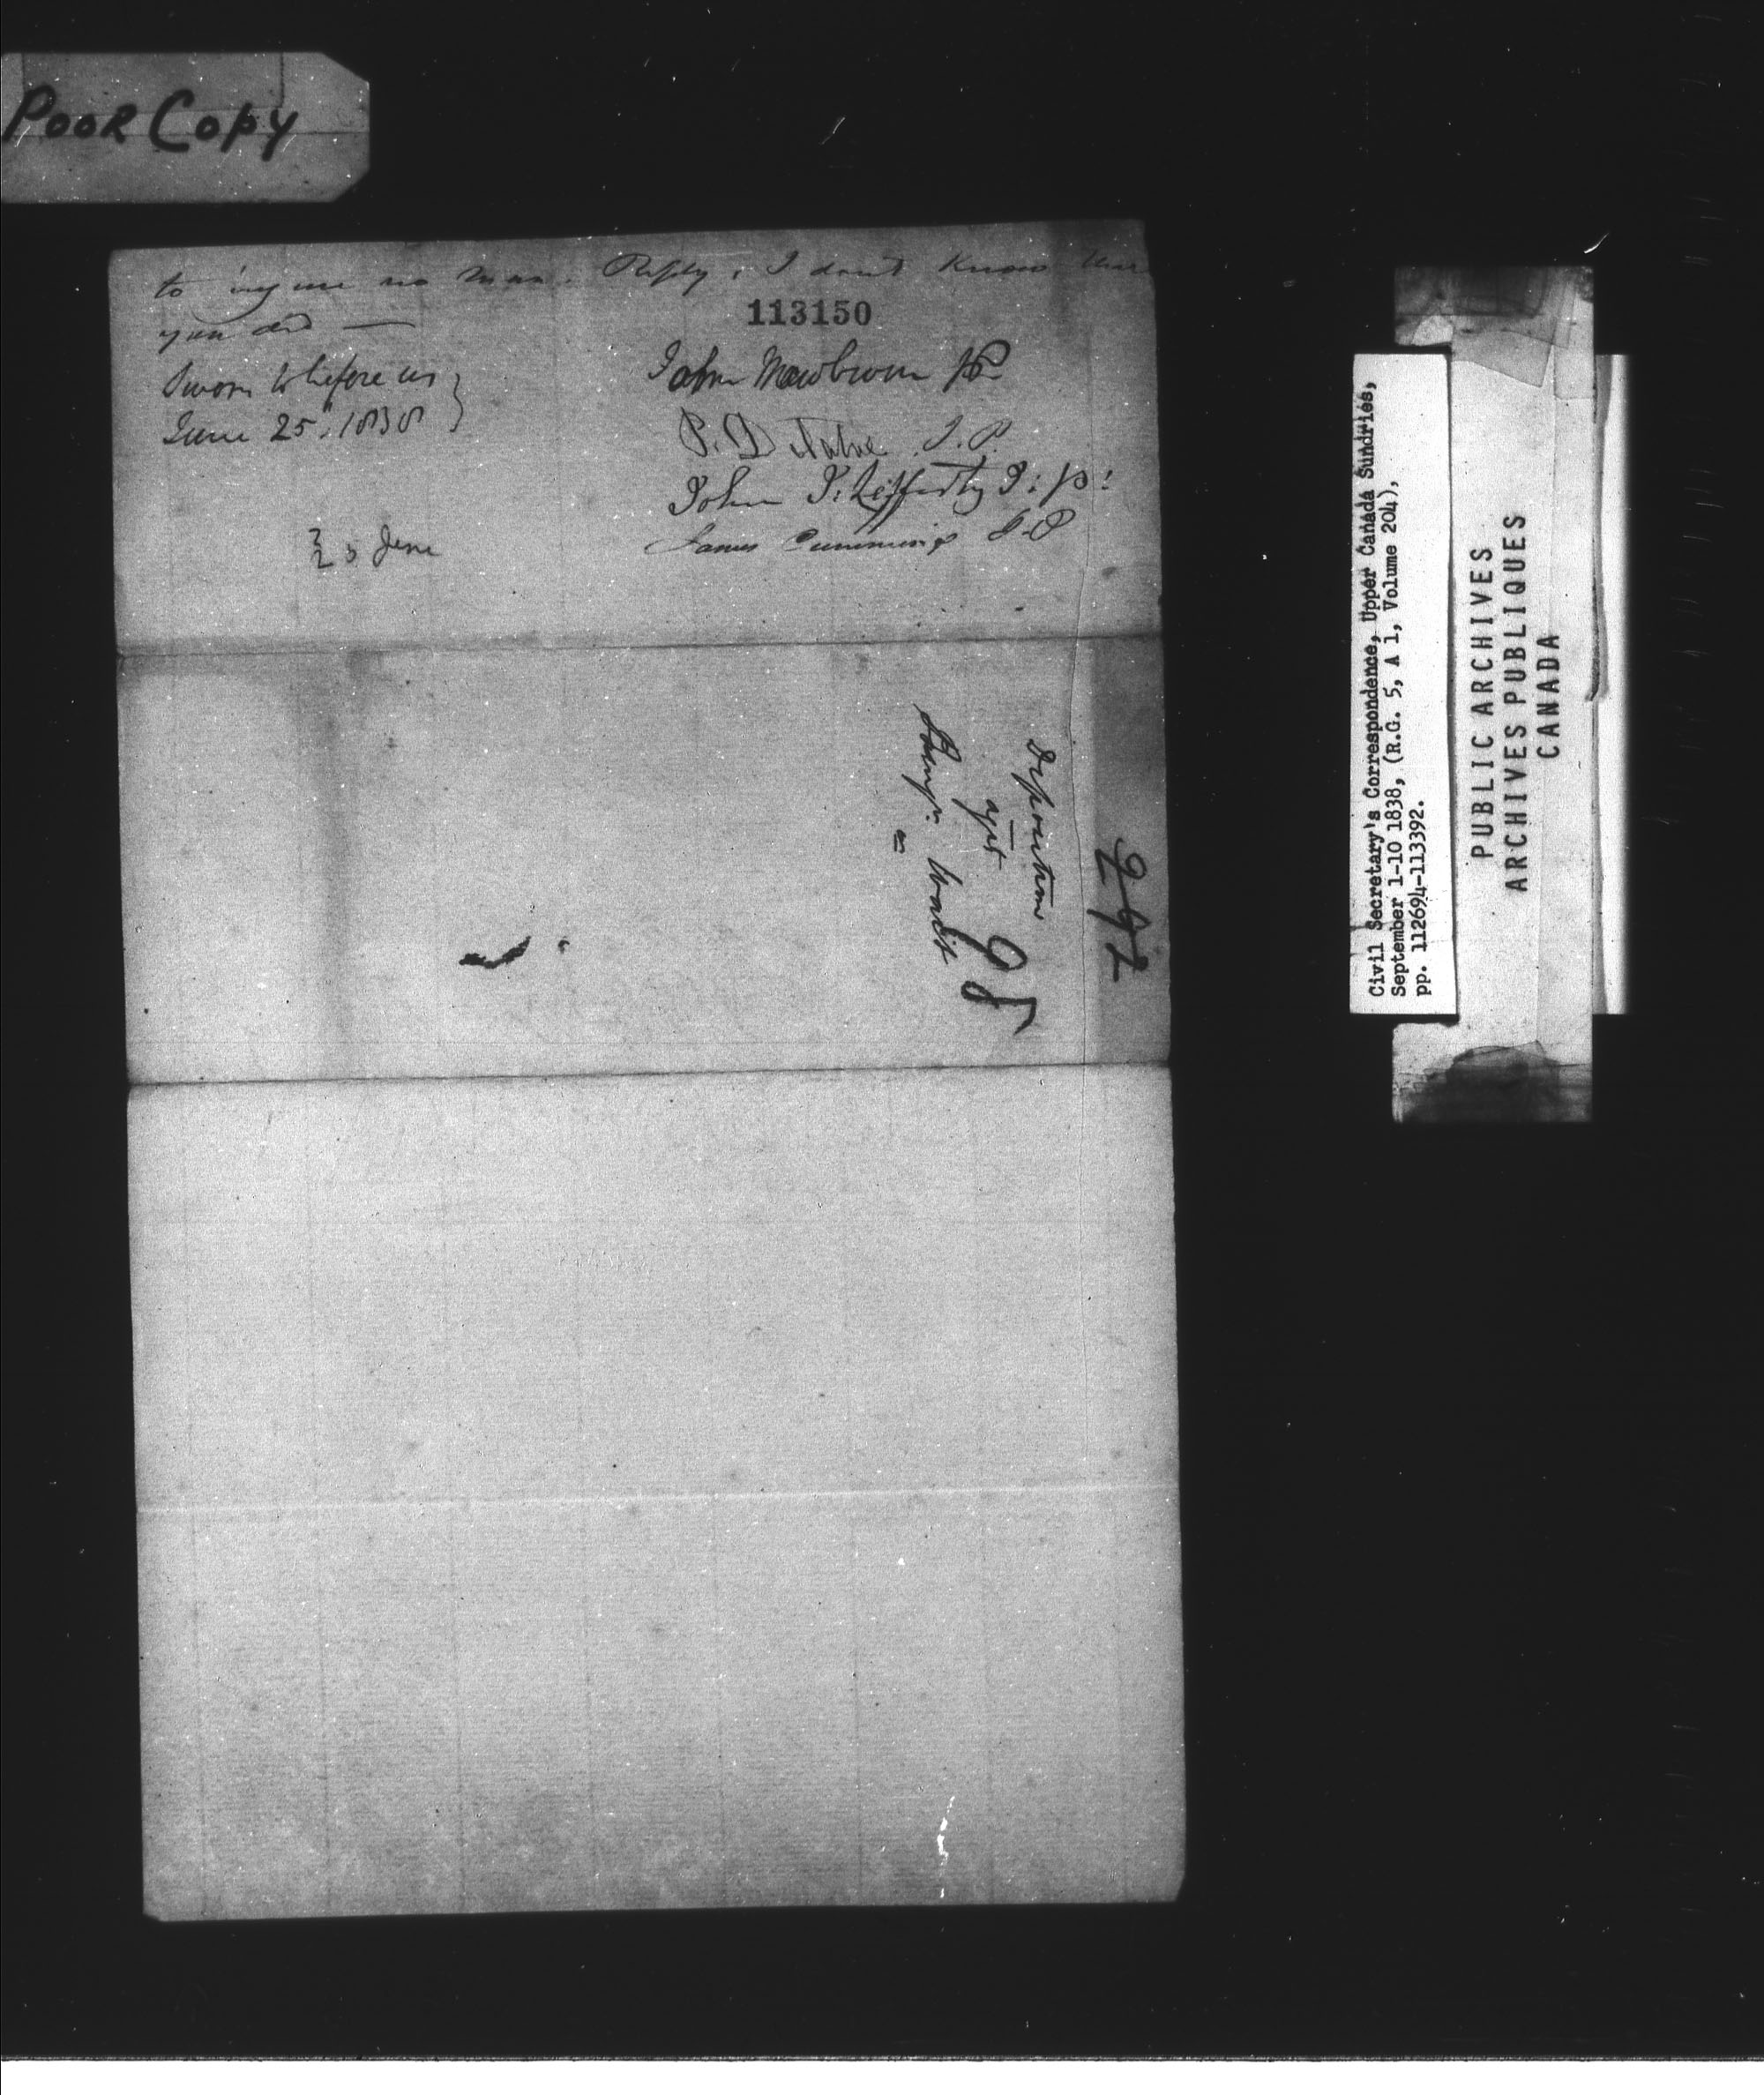 Poor Copy
to injure no man. Reply, I dont know that
you did —
113150
Sworn to before us
June 25th. 1838
John Mewburn JP
P. D J.P.
John J: Lefferty J: p:
James Cummings J.P
25 June
Deposition
agst
Benjn. Wait
95
Civil Secretary's Correspondence, Upper Canada Sundries,
September 1-10 1838, (R.G. 5, A 1, Volume 204),
pp. 112694-113392.
PUBLIC ARCHIVES
ARCHIVES PUBLIQUES
CANADA